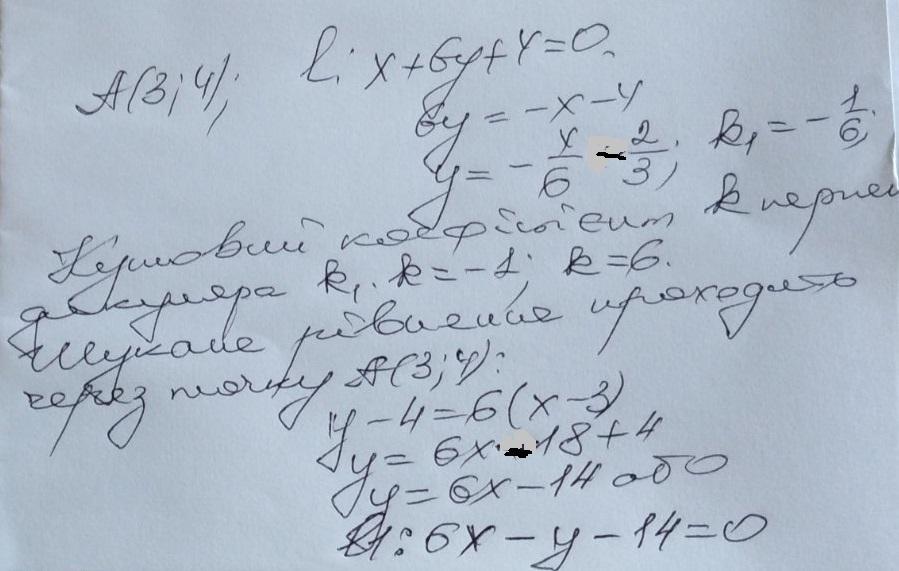 A(3;4); l: x+6y+4=0.
6y = -x-4
y = - x/6 - 2/3; k₁ = - 1/6;
Кутовий коефіцієнт k перпен
дикуляра k₁·k=-1; k=6.
Шукане рівненне проходить
через точку A(3;4):
y-4=6(x-3)
y=6x-18+4
y=6x-14 або
6x-y-14=0